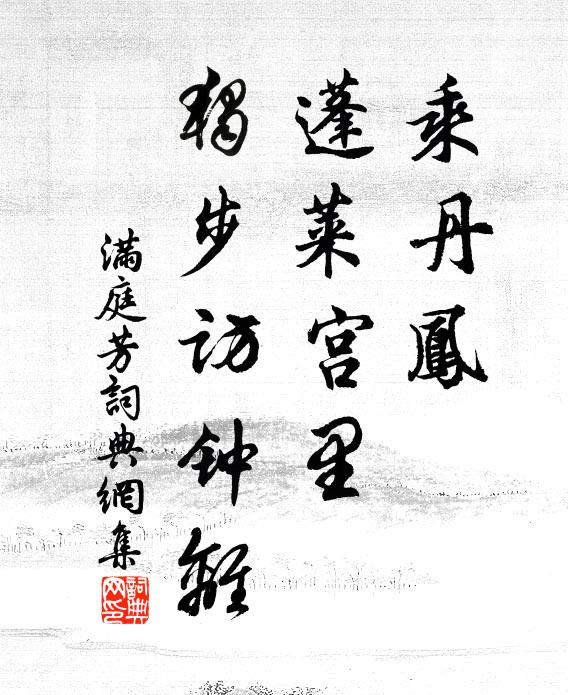 乘丹鳳
蓬莱宫里
獨步访钟離
滿庭芳詞典網集
詞典
网印